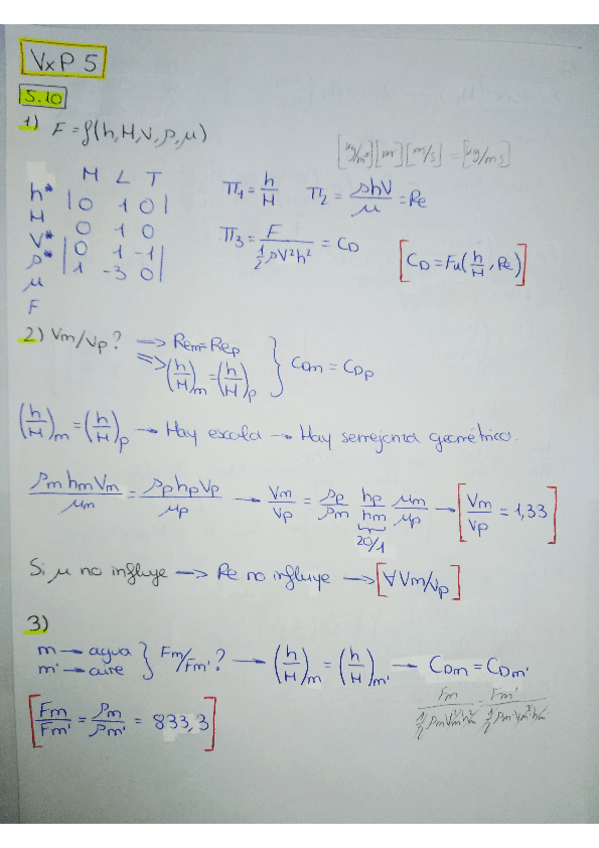 VxP 5
5.10
1) F = f(h, H, V, ρ, μ)
[ug/m³][m][m/s] = [ug/ms]
M L T
h* |0 1 0|
H 0 1 0
V* |0 1 -1|
ρ* |1 -3 0|
μ
F
Π1 = h/H Π2 = ρhV/μ = Re
Π3 = F/(½ρV²h²) = CD [CD = Fu(h/H, Re)]
2) Vm/Vp? → Rem = Rep
⇒ (h/H)m = (h/H)p } CDm = CDp
(h/H)m = (h/H)p → Hay escala → Hay semejanza geométrica.
ρm hm Vm/μm = ρp hp Vp/μp → Vm/Vp = ρp/ρm hp/hm μm/μp → [Vm/Vp = 1,33]
20/1
Si μ no influye → Re no influye → [∀ Vm/Vp]
3)
m → agua
m' → aire } Fm/Fm'? → (h/H)m = (h/H)m' → CDm = CDm'
[Fm/Fm' = ρm/ρm' = 833,3]